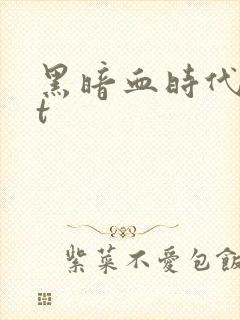 黑暗血時代
t
紫菜不愛包飯